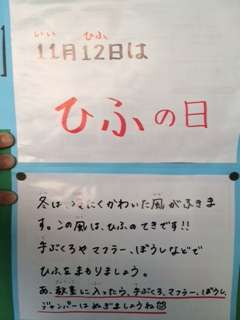 いい ひふ
11月12日は
ひふの日
冬は、とくにかわいた風がふきま
す。この風は、ひふのてきです!!
手ぶくろやマフラー、ぼうしなどで
ひふをまもりましょう。
あ、教室に入ったら、手ぶくろ、マフラー、ぼうし、
ジャンパーはぬぎましょうね